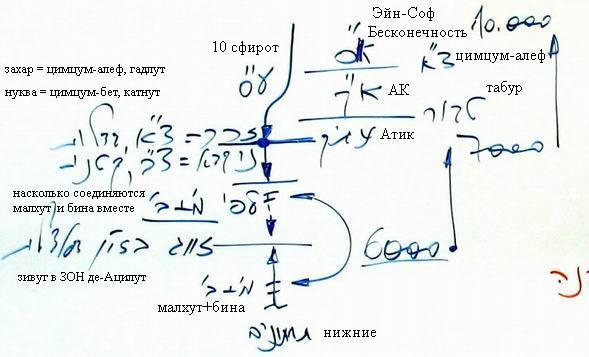 Эйн-Соф
Бесконечность
10.000
10 сфирот
א"ס
צ"א
цимцум-алеф
ע"ס
захар = цимцум-алеф, гадлут
א"ק
АК
табур
нуква = цимцум-бет, катнут
טבור
זכר = צ"א, גדלות
עתיק
Атик
7000
נוקבא = צ"ב, קטנות
насколько соединяются
малхут и бина вместе
6000
зивуг в ЗОН де-Ацилут
малхут+бина
תחתונים
нижние